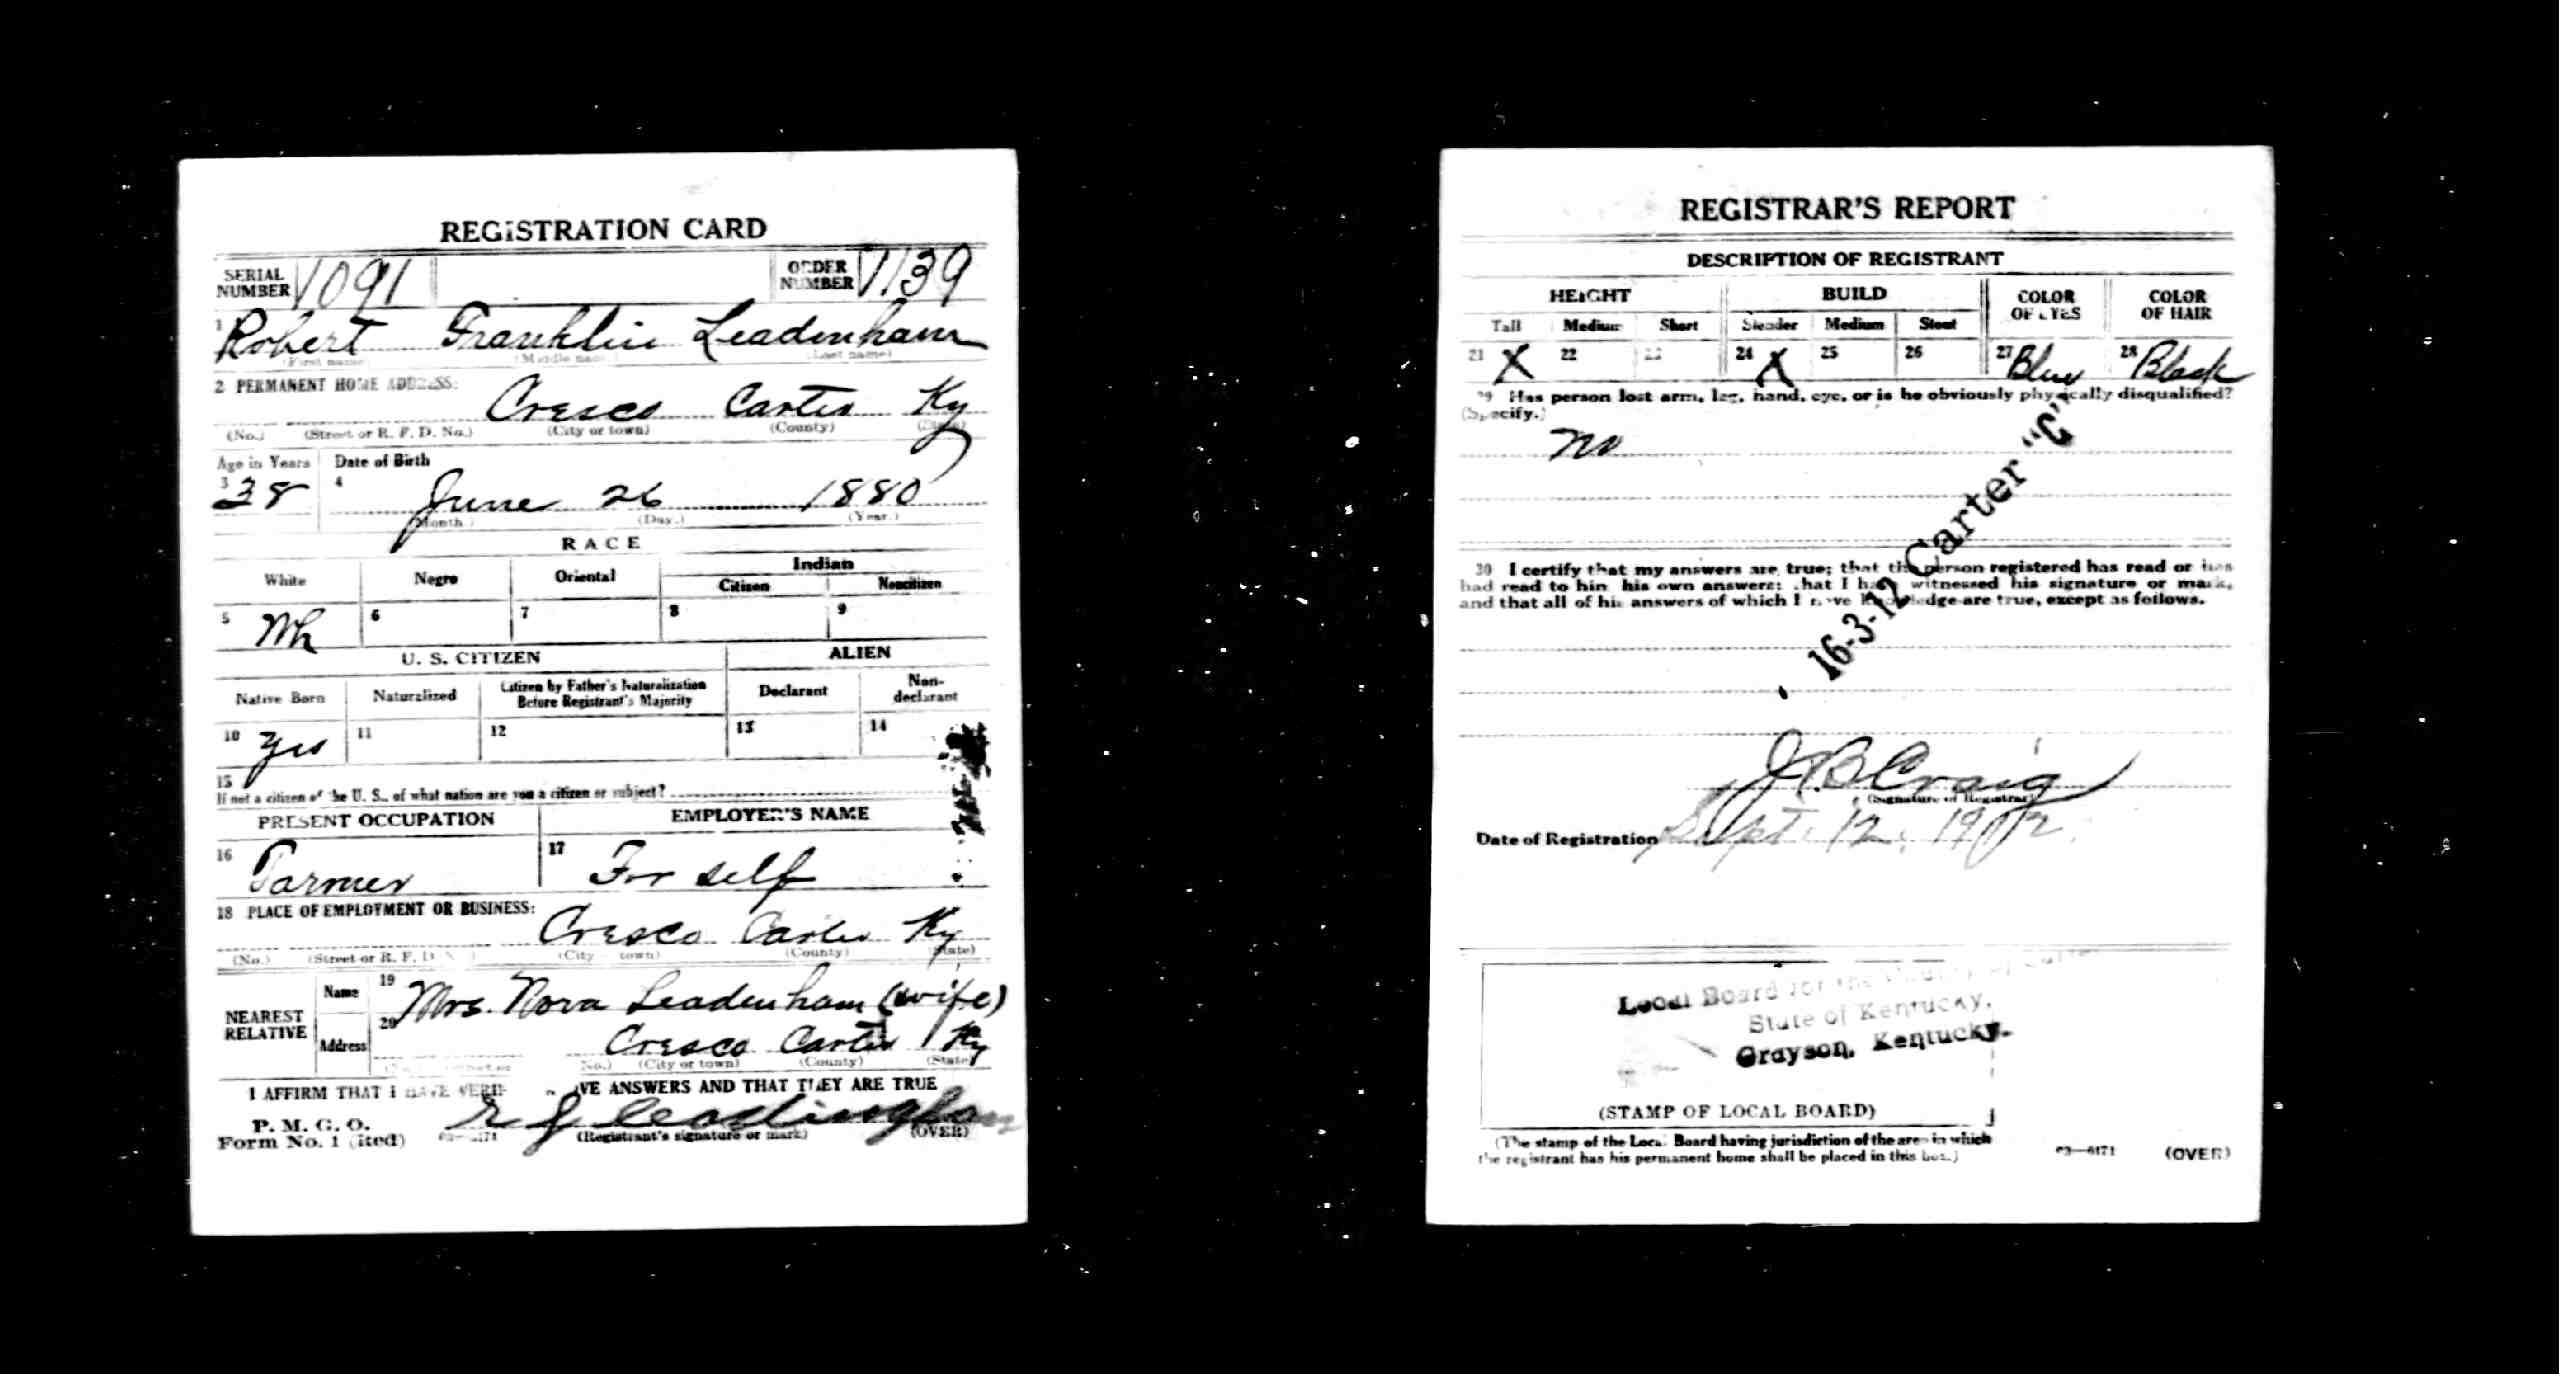 REGISTRATION CARD
SERIAL NUMBER 1091 ORDER NUMBER 1139
1 Robert Franklin Leadenham
(First name) (Middle name) (Last name)
2 PERMANENT HOME ADDRESS:
Cresco Carter Ky
(No.) (Street or R. F. D. No.) (City or town) (County) (State)
Age in Years Date of Birth
3 38 4 June 26 1880
(Month.) (Day.) (Year.)
RACE
White Negro Oriental Indian
Citizen Noncitizen
5 Wh 6 7 8 9
U. S. CITIZEN ALIEN
Native Born Naturalized Citizen by Father's Naturalization Before Registrant's Majority Declarant Non-declarant
10 Yes 11 12 13 14
15
If not a citizen of the U. S., of what nation are you a citizen or subject?
PRESENT OCCUPATION EMPLOYER'S NAME
16 Farmer 17 For self
18 PLACE OF EMPLOYMENT OR BUSINESS:
Cresco Carter Ky
(No.) (Street or R. F. D. (City town) (County) (State)
NEAREST RELATIVE Name 19 Mrs. Nova Leadenham (wife)
Address 20 Cresco Carter Ky
No.) (City or town) (County) (State)
I AFFIRM THAT I HAVE VERIF VE ANSWERS AND THAT THEY ARE TRUE
P. M. G. O.
Form No. 1 (Red) (Registrant's signature or mark) (OVER)
REGISTRAR'S REPORT
DESCRIPTION OF REGISTRANT
HEIGHT BUILD COLOR OF EYES COLOR OF HAIR
Tall Medium Short Slender Medium Stout
21 X 22 23 24 X 25 26 27 Blue 28 Black
29 Has person lost arm, leg, hand, eye, or is he obviously physically disqualified?
(Specify.)
no
16-3-12 Carter "C"
30 I certify that my answers are true; that the person registered has read or has
had read to him his own answers; that I have witnessed his signature or mark,
and that all of his answers of which I have knowledge are true, except as follows.
J B Craig
(Signature of Registrar)
Date of Registration Sept. 12,
Local Board for the County of Carter
State of Kentucky,
Grayson, Kentucky.
(STAMP OF LOCAL BOARD)
(The stamp of the Local Board having jurisdiction of the area in which
the registrant has his permanent home shall be placed in this box.)
03—6171 (OVER)